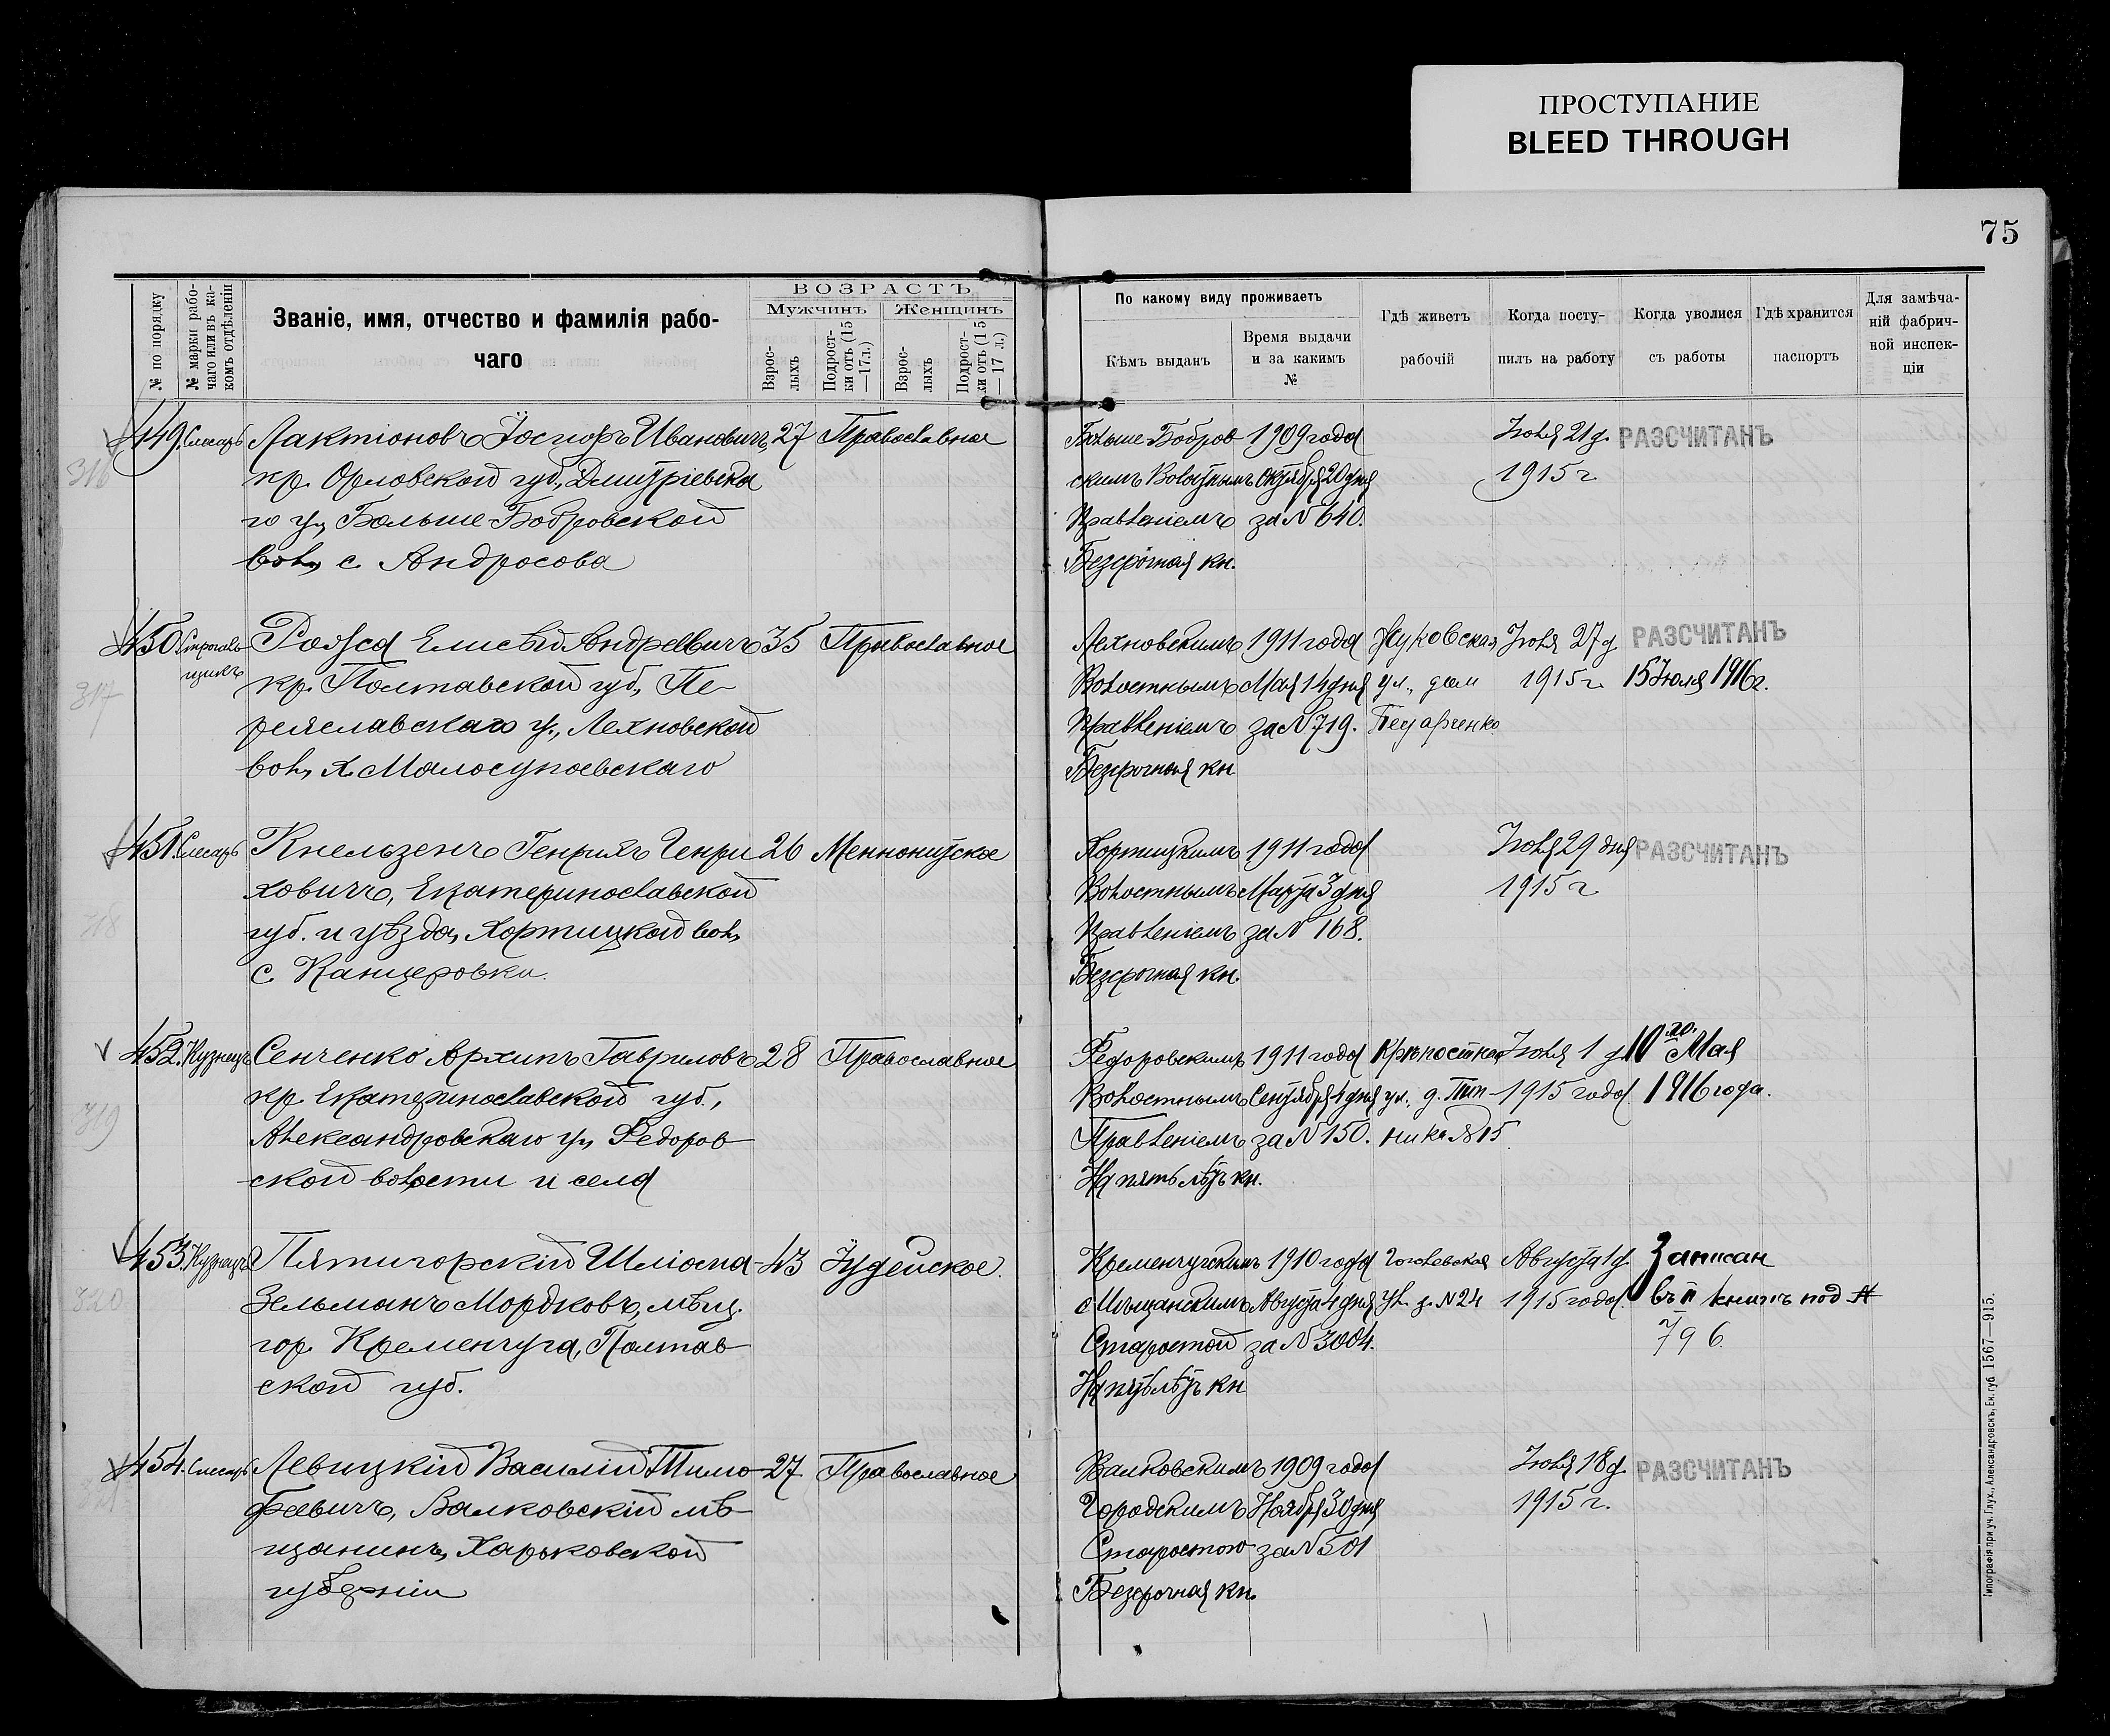 ПРОСТУПАНИЕ
BLEED THROUGH
75
№ по порядку
№ марки рабо-
чаго или въ ка-
комъ отдѣленіи
Званіе, имя, отчество и фамилія рабо-
чаго
ВОЗРАСТЪ
Мужчинъ
Женщинъ
Взрос-
лыхъ
Подрост-
ки отъ (15
—17 л.)
Взрос-
лыхъ
Подрост-
ки отъ (15
— 17 л.)
По какому виду проживаетъ
Кѣмъ выданъ
Время выдачи
и за какимъ
№
Гдѣ живетъ
рабочій
Когда посту-
пилъ на работу
Когда уволися
съ работы
Гдѣ хранится
паспортъ
Для замѣча-
ній фабрич-
ной инспек-
ціи
449. Слесарь Лактіоновъ Іосифъ Ивановичъ, 27 Православное
316
кр. Орловской губ., Дмитріевска
го у., Больше-Бобровской
вол., с. Андросова
Больше-Бобров- 1909 года Іюля 21 д. РАЗСЧИТАНЪ
скимъ Волостнымъ Октября 20 дня 1915 г
Правленіемъ за N 640.
Безсрочная кн.
450 Строгаль-
щикъ
Елисѣй Андреевичъ 35 Православное
317
кр. Полтавской губ., Пе-
реяславскаго у., Лехновской
вол., х. Малосупоевскаго
Лехновскимъ 1911 года Жуковская Іюля 27 д РАЗСЧИТАНЪ
Волостнымъ Мая 14 дня ул., дом 1915 г 15 Іюля 1916 г.
Правленіемъ за N 719.
Безсрочная кн
451. Слесарь Кнельзенъ Генрихъ Генри 26 Меннонитское
318
ховичъ, Екатеринославской
губ. и уѣзда, Хортицкой вол.,
с. Канцеровки.
Хортицкимъ 1911 года Іюля 29 дня РАЗСЧИТАНЪ
Волостнымъ Марта 3 дня 1915 г
Правленіемъ за N 168.
Безсрочная кн.
452. Кузнецъ Сенченко Архипъ Гавриловъ 28 Православное
319
кр. Екатеринославской губ.,
Александровскаго у., Федоров-
ской волости и села
Федоровскимъ 1911 года Крѣпостная Іюля 1 д. 10 го. Мая
Волостнымъ Сентября 4 дня ул., д. Тип- 1915 года. 1916 года.
Правленіемъ за N 150. ника № 15
На пять лѣтъ кн.
453. Кузнецъ Пятигорскій Шліома- 43 Іудейское.
320
Зельманъ Мордковъ, мѣщ.
гор. Кременчуга, Полтав-
ской губ.
Кременчугскимъ 1910 года Гоголевская Августа 1 д. Записан
Мѣщанскимъ Августа 4 дня ул. д. N 24 1915 года. въ II книгѣ под №
Старостой за N 3004. 796.
На пять лѣтъ кн
454. Слесарь Левицкій Василій Тимо- 27 Православное
321
феевичъ, Валковскій мѣ-
щанинъ, Харьковской
губерніи
Валковскимъ 1909 года Іюля 18 д. РАЗСЧИТАНЪ
Городскимъ Ноября 30 дня 1915 г.
Старостою за N 501
Безсрочная кн.
Типографія при уч. Глух., Александровскъ, Ек. губ. 1567—915.